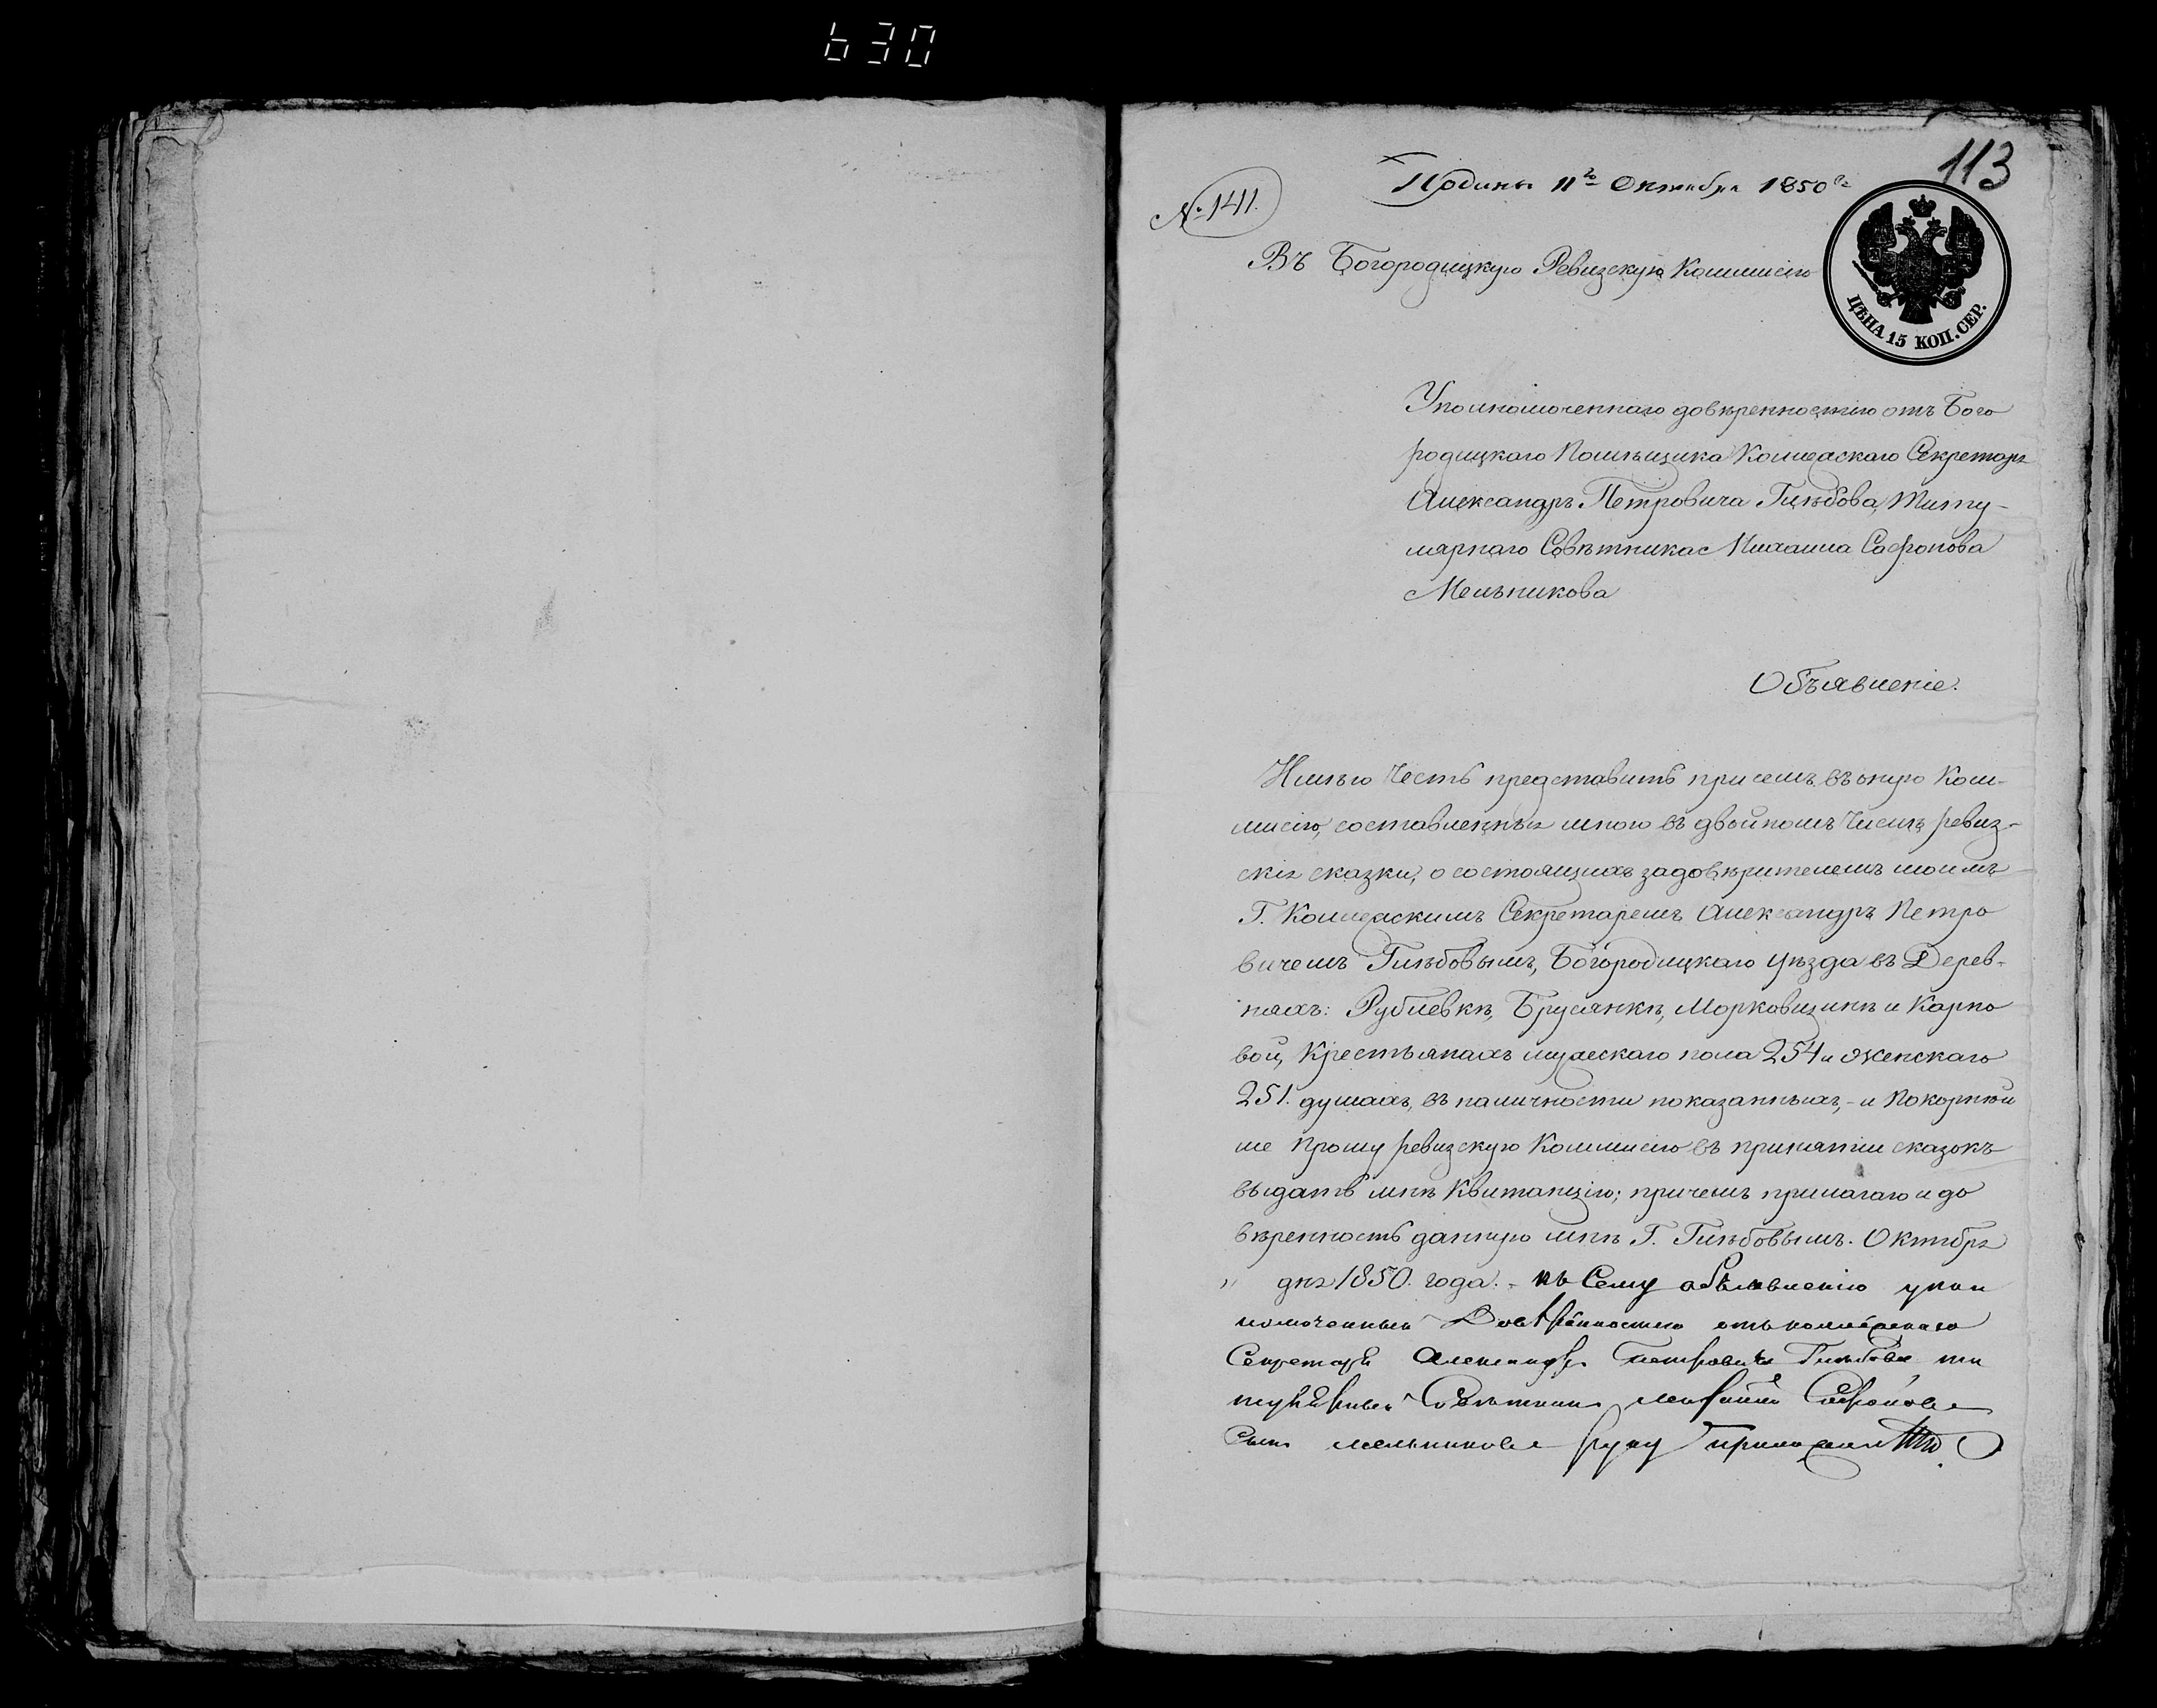 630
113
Подины 11го Октября 1850го
№ 1411.
Въ Богородицкую Ревизскую Коммисiю
ЦѢНА 15 КОП. СЕР.
Уполномоченнаго довѣренностiю отъ Бого
родицкаго Помѣщика Коллежскаго Секретаря
Александръ Петровича Глѣбова, Титу-
лярнаго Совѣтника Михаила Сафронова
Мельникова
Объявленiе.
Имѣю честь представить при семъ въ оную Ком-
мисiю, составленныя мною въ двойномъ числѣ ревиз-
скiя сказки, о состоящихъ за довѣрителемъ моимъ
Г. Коллежскимъ Секретаремъ Александръ Петро
вичемъ Глѣбовымъ, Богородицкаго уѣзда въ Дерев-
няхъ: Рублевкѣ, Брусянкѣ, Марковщинѣ и Карпо
вой, Крестьянахъ мужескаго пола 254 и женскаго
251. душахъ, въ наличности показанныхъ, - и Покорнѣй
ше Прошу ревизскую Коммисiю въ принятiи сказокъ
выдать мнѣ Квитанцiю; причемъ прилагаю и до
вѣренность данную мнѣ Г. Глѣбовымъ. Октября
" дня 1850. года. - къ Сему объявленiю упол
номоченный Довѣренностiю отъ коллежскаго
Секретаря Александръ Петровича Глѣбова ти
тулярный Совѣтникъ Сафронове
Сынъ мельникове руку приложилъ